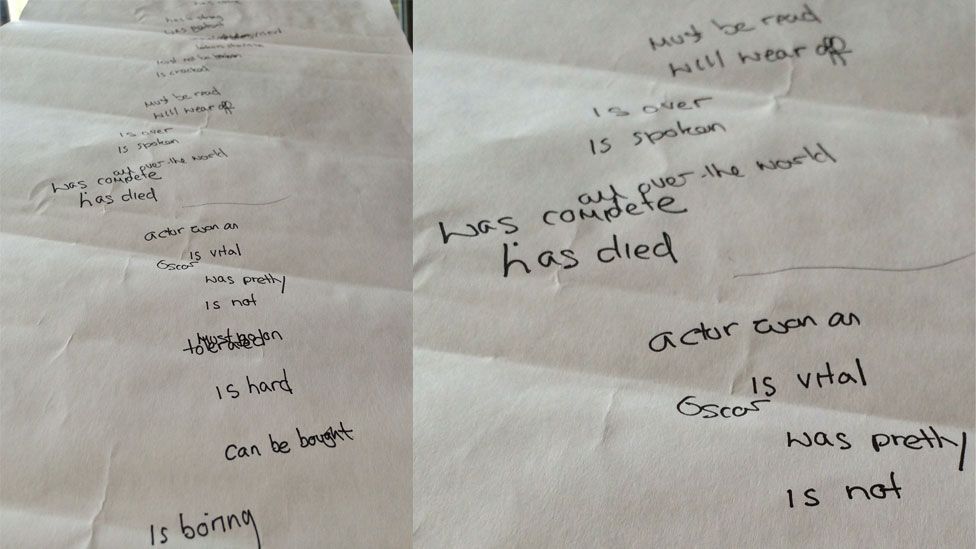 is cracked
Must be read
will wear off
is over
is spoken
all over the world
was compete
has died
actor won an
is vital
Oscar
was pretty
is not
tolerated
is hard
can be bought
is boring
Must be read
will wear off
is over
is spoken
all over the world
was compete
has died
actor won an
is vital
Oscar
was pretty
is not